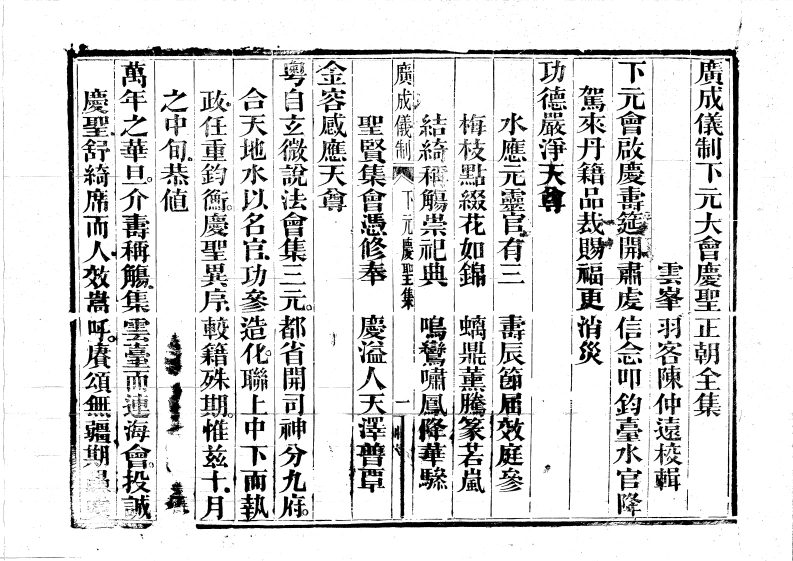 廣成儀制下元大會慶聖正朝全集
雲峯羽客陳仲遠校輯
下元會啟慶壽筵開肅虔信念叩鈞臺水官降
駕來丹籍品裁賜福更消災
功德嚴淨天尊
水應元靈官有三 壽辰節屆效庭參
梅枝點綴花如錦 螭鼎薰騰篆若嵐
結綺稱觴崇祀典 鳴鸞嘯鳳降華驂
廣成儀制 下元慶聖集 一
聖賢集會憑修奉 慶溢人天澤普覃
金容感應天尊
粵自玄微說法會集三元。都省開司神分九府。
合天地水以名官。功參造化。聯上中下而執
政。任重鈞衡。慶聖異序。較籍殊期。惟茲十月
之中旬。恭值
萬年之華旦。介壽稱觴。集雲臺而連海會。投誠
慶聖舒綺席而人效嵩呼。賡頌無疆期